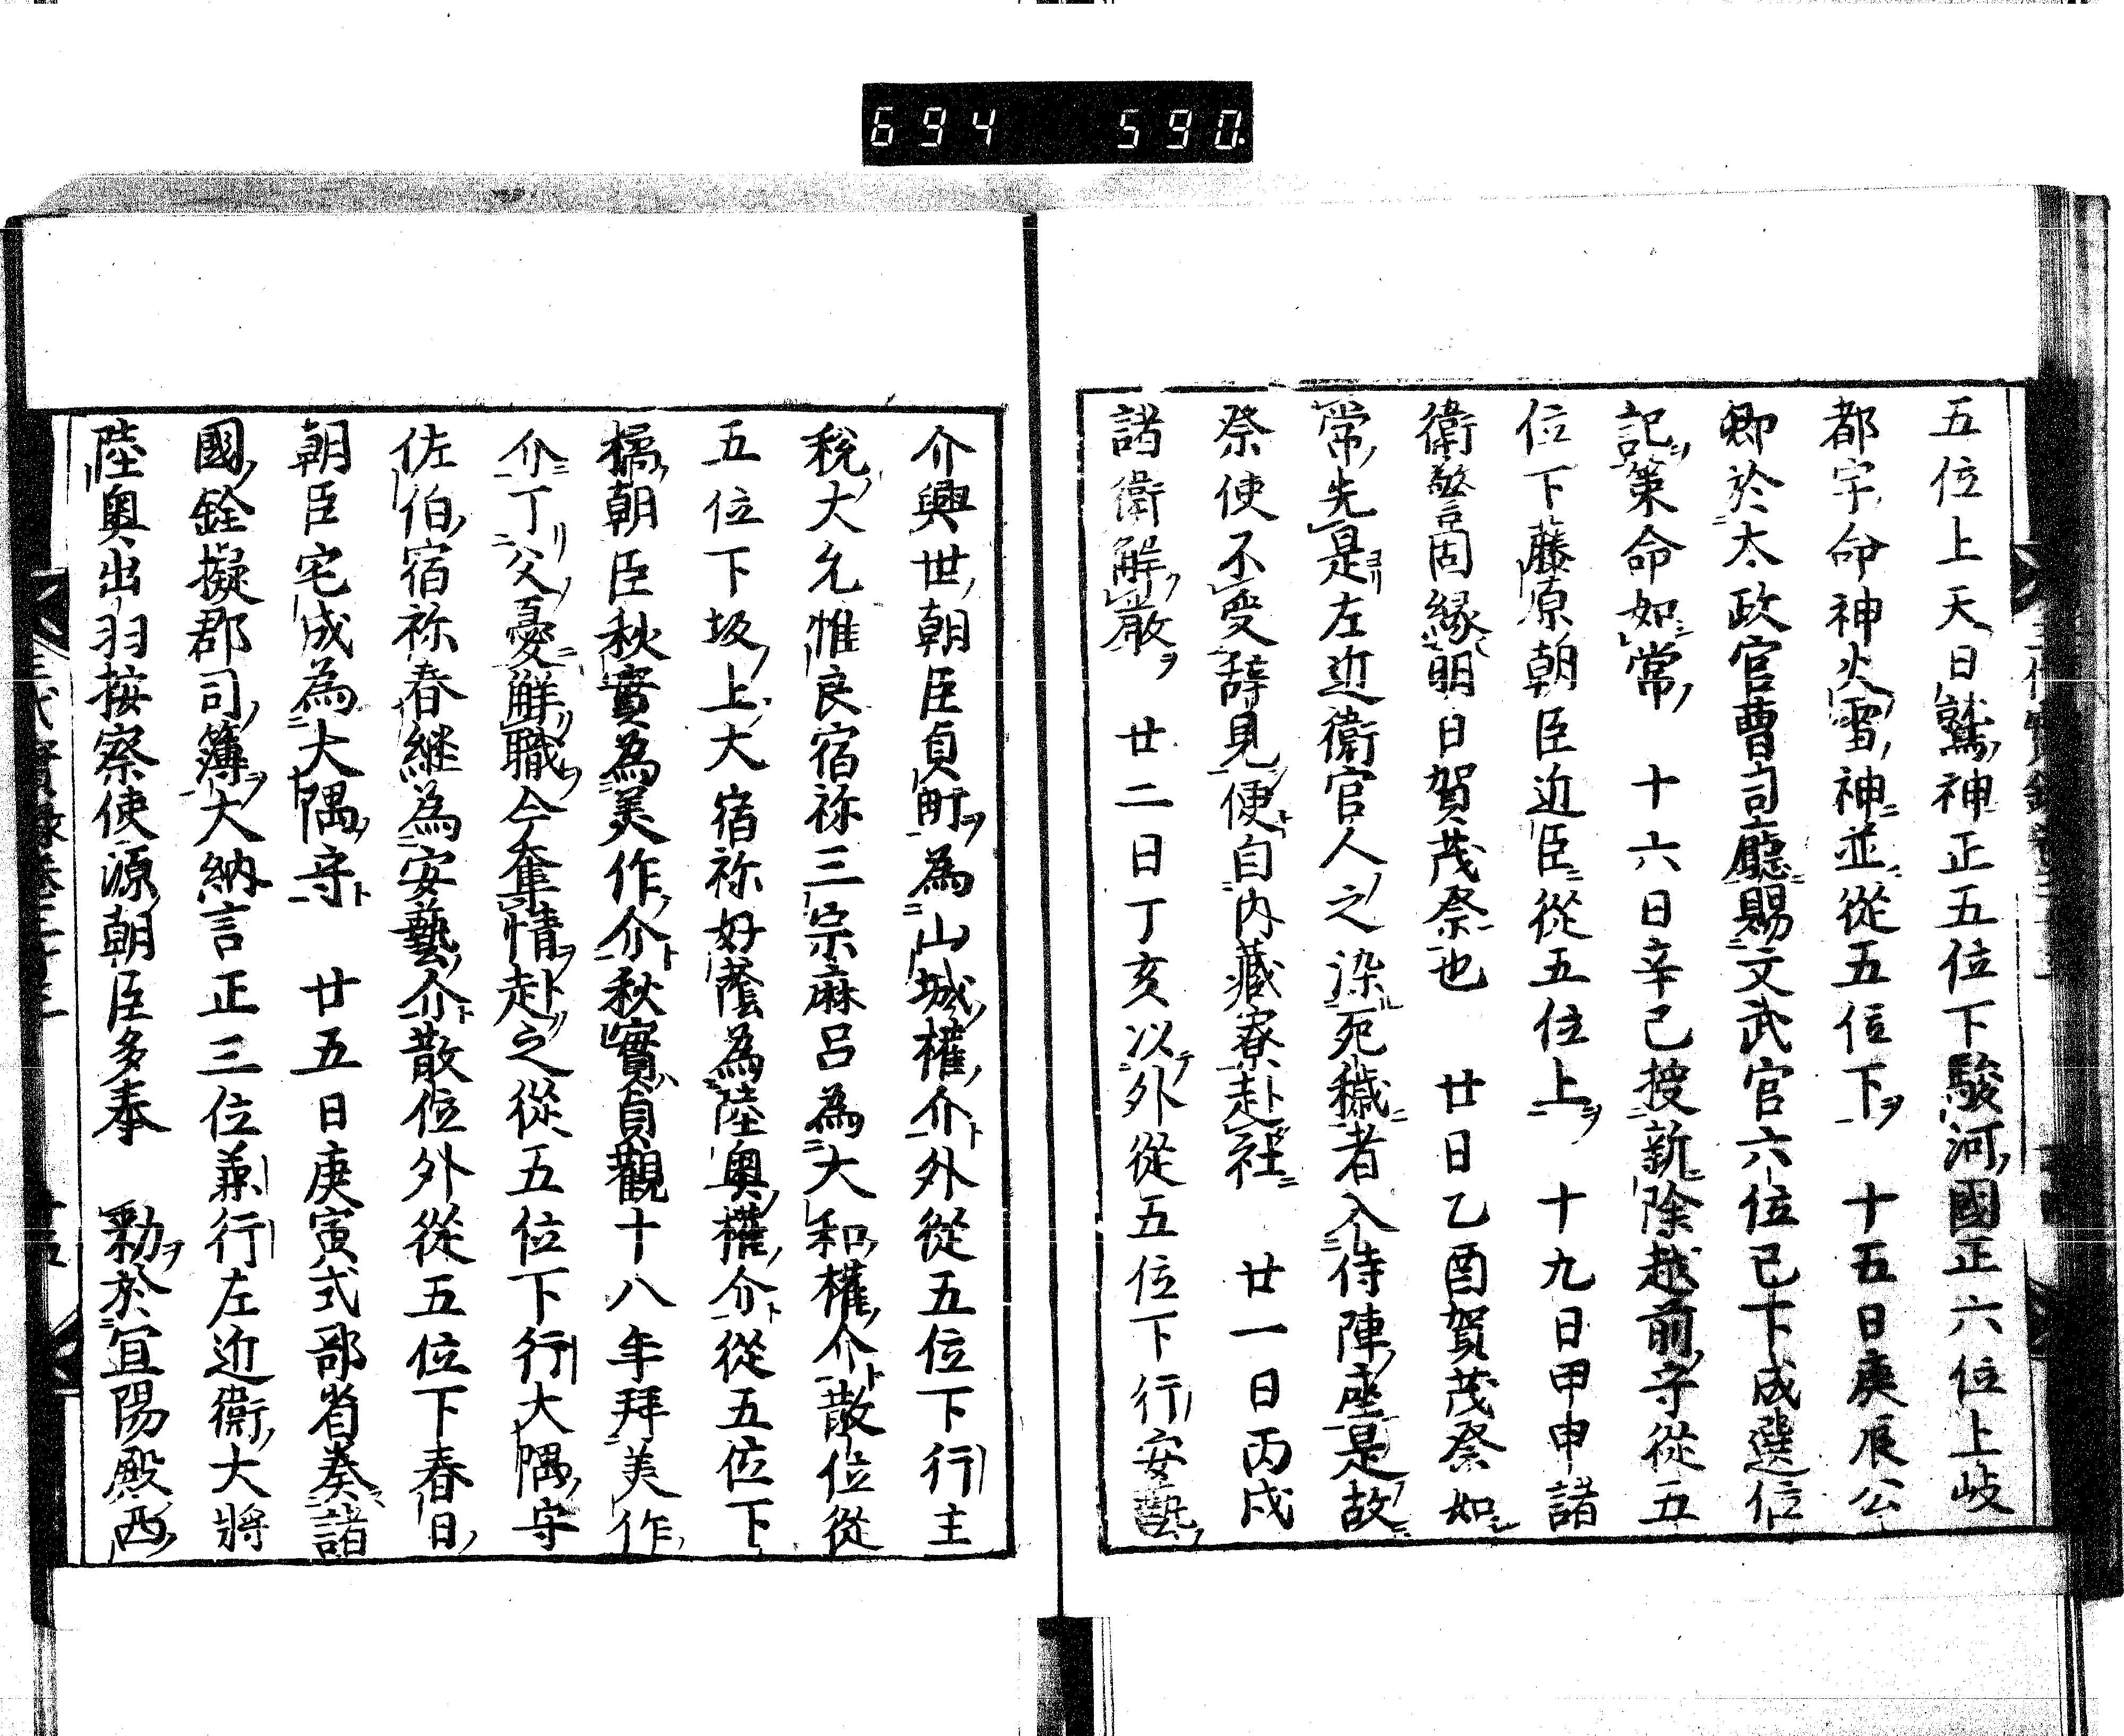 694 590
五位上天日鷲神正五位下駿河國正六位上岐
都宇命神火雷神並從五位下 十五日庚辰公
卿於太政官曹司廳賜文武官六位已下成選位
記策命如常 十六日辛巳授新除越前守從五
位下藤原朝臣近臣從五位上 十九日甲申諸
衛警固緣明日賀茂祭也 廿日乙酉賀茂祭如
常先是左近衛官人之染死穢者入侍陣座是故
祭使不受辭見便自內藏寮赴社 廿一日丙戌
諸衛解嚴 廿二日丁亥以外從五位下行安藝
介興世朝臣貞町為山城權介外從五位下行主
稅大允惟良宿祢三宗麻呂為大和權介散位從
五位下坂上大宿祢好蔭為陸奧權介從五位下
橘朝臣秋實為美作介秋實貞觀十八年拜美作
介丁父憂解職今奪情赴之從五位下行大隅守
佐伯宿祢春継為安藝介散位外從五位下春日
朝臣宅成為大隅守 廿五日庚寅式部省奏諸
國銓擬郡司簿大納言正三位兼行左近衛大將
陸奧出羽按察使源朝臣多奉 勅於宜陽殿西